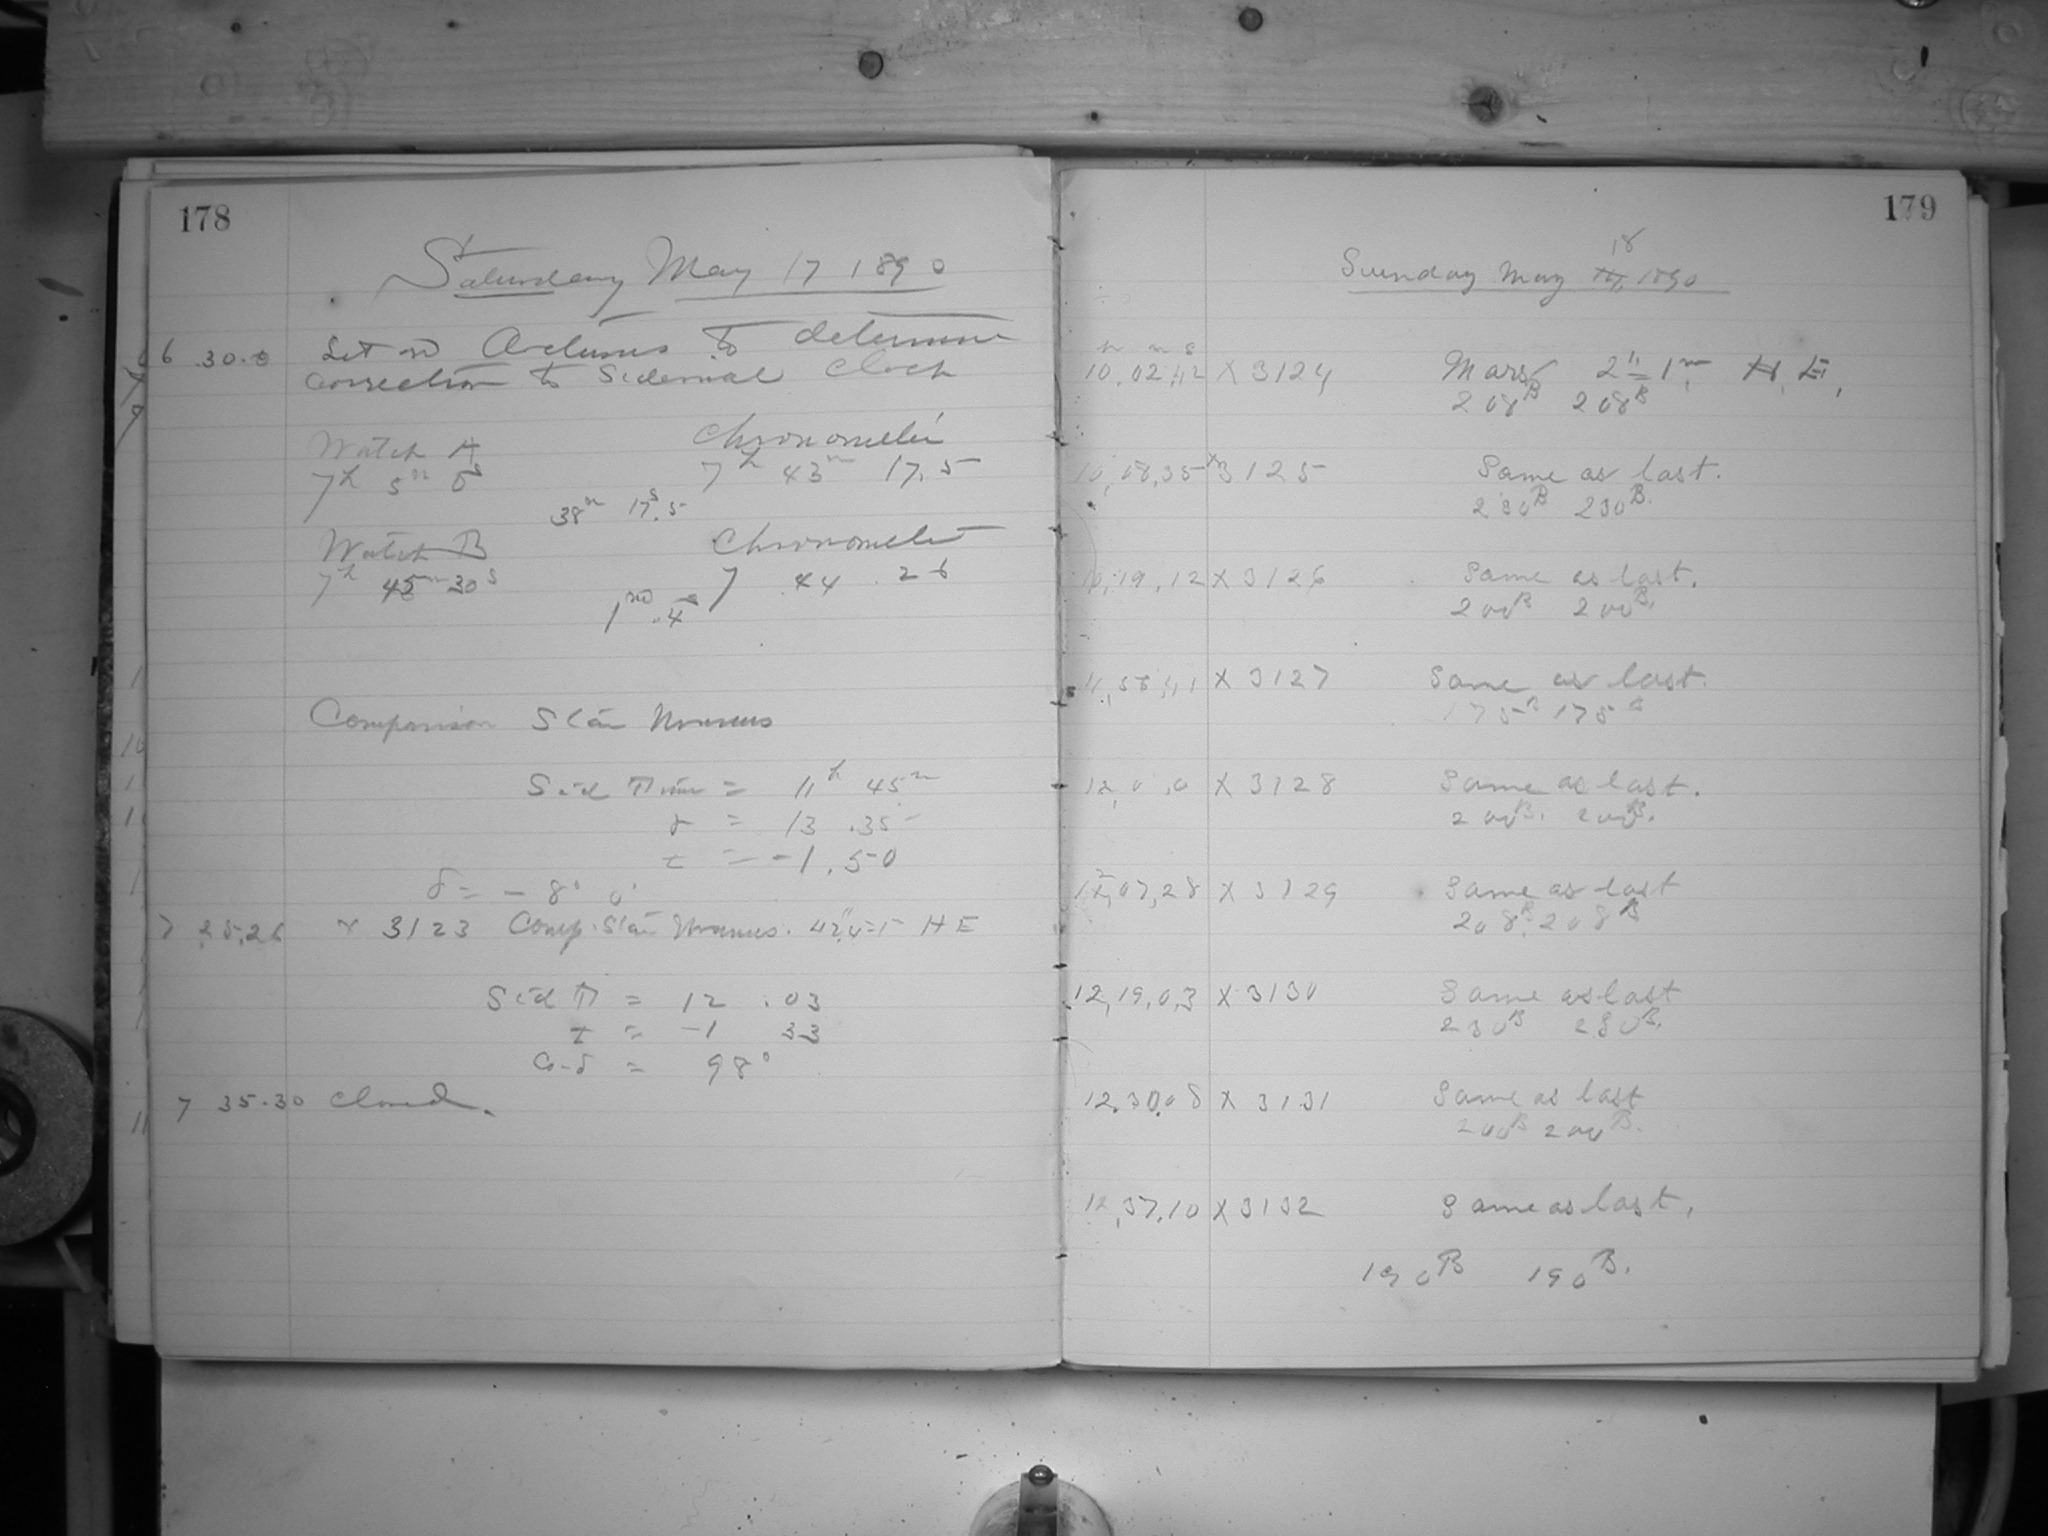 178
Saturday May 17 1890
6 30.0 Set on Arcturus to determine
correction to Sidereal Clock
Watch A Chronometer
7h 5m 0s 7h 43m 17.5
38m 17s.5
Watch B Chronometer
7h 45m 30s 7 44 . 26
1m .4s
Comparison Star
Sid Time = 11h 45m
= 13 .35
t = -1.50
δ = - 8° 0'
7 25.26 x 3123 Comp. Star HE
Sid T = 12 .03
t = -1 33
Co-δ = 98°
7 35.30 Closed.
179
18
Sunday May 1890
h m s
10,02,42 X 3124 Mars 2 1m H. E.
208B 208B
10,08,35 X 3125 Same as last.
230B 230B.
10,19,12 X 3126 Same as last.
200B 200B.
X 3127 Same as last.
175B 175B
12,0,0 X 3128 Same as last.
200B. 200B.
12,07,28 X 3129 Same as last
208B. 208B
12,19,03 X 3130 Same as last
230B 230B.
12,30,08 X 3131 Same as last
200B 200B.
12,37,10 X 3132 Same as last,
190B 190B.